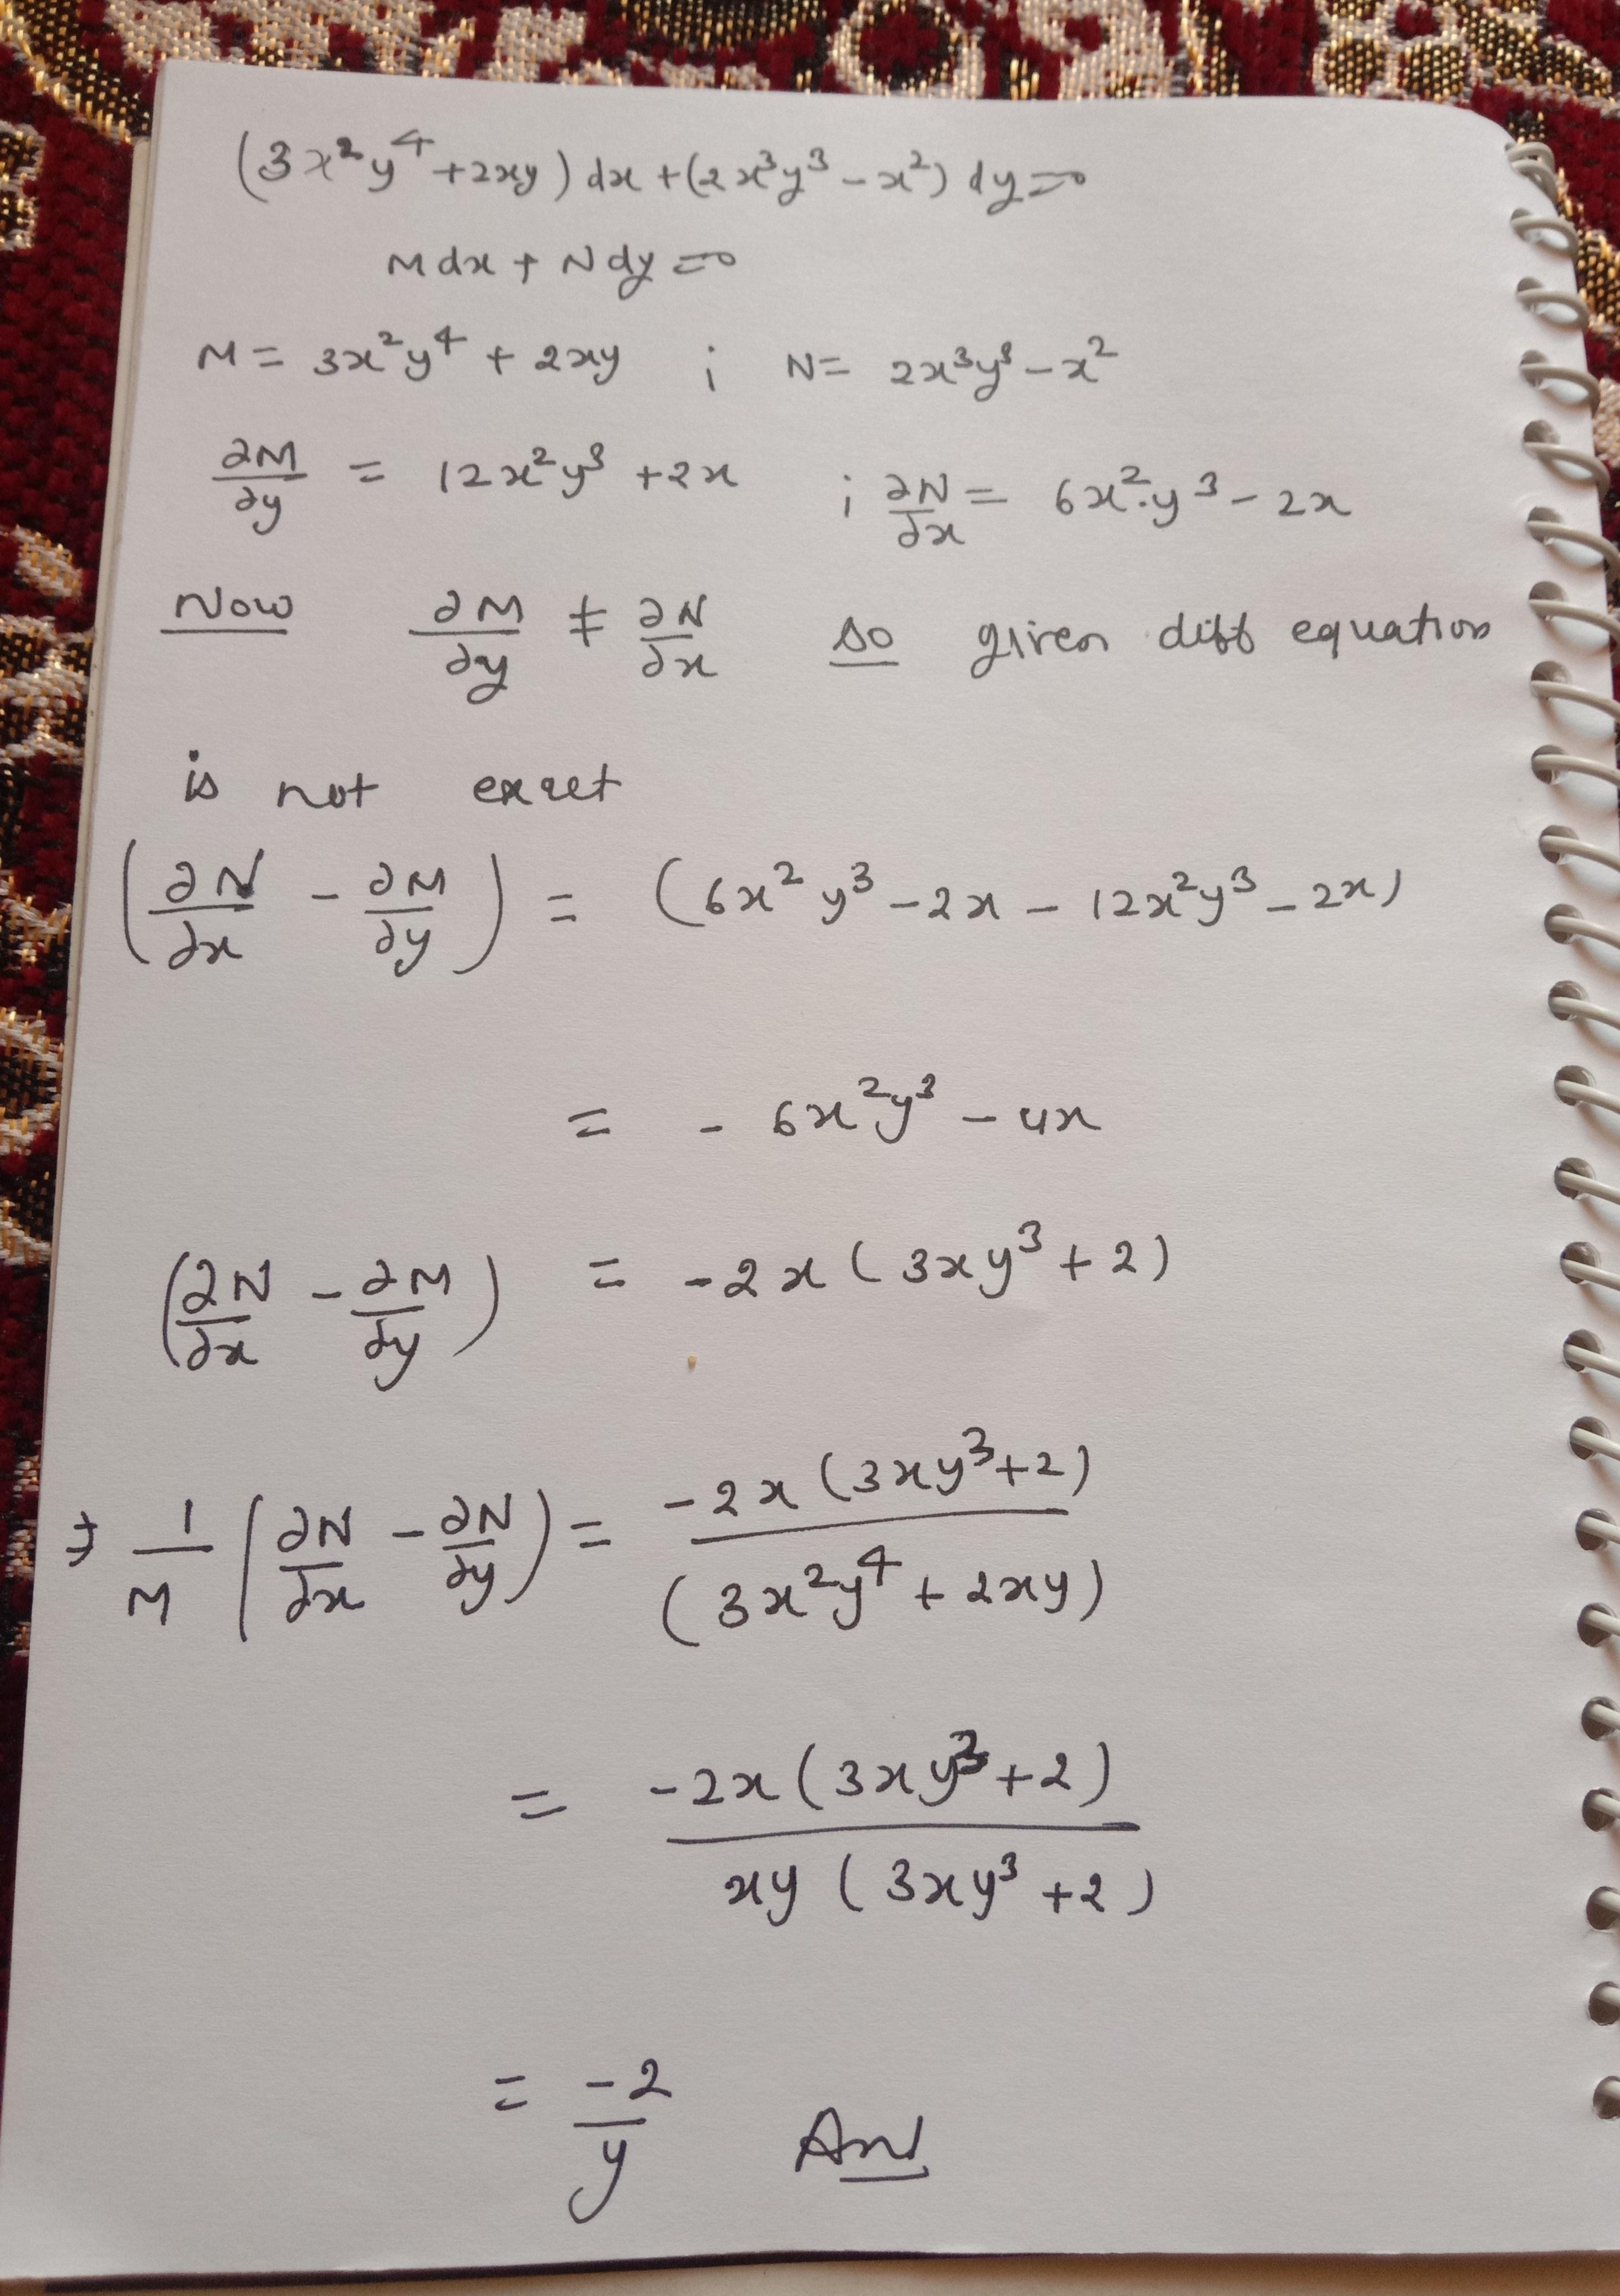 (3x²y⁴ + 2xy) dx + (2x³y³ - x²) dy = 0
M dx + N dy = 0
M = 3x²y⁴ + 2xy ; N = 2x³y³ - x²
∂M/∂y = 12x²y³ + 2x ; ∂N/∂x = 6x².y³ - 2x
Now ∂M/∂y ≠ ∂N/∂x so given diff equation
is not exact
(∂N/∂x - ∂M/∂y) = (6x²y³ - 2x - 12x²y³ - 2x)
= - 6x²y³ - 4x
(∂N/∂x - ∂M/∂y) = -2x (3xy³ + 2)
⇒ 1/M (∂N/∂x - ∂N/∂y) = -2x (3xy³ + 2) / (3x²y⁴ + 2xy)
= -2x (3xy³ + 2) / xy (3xy³ + 2)
= -2/y Ans